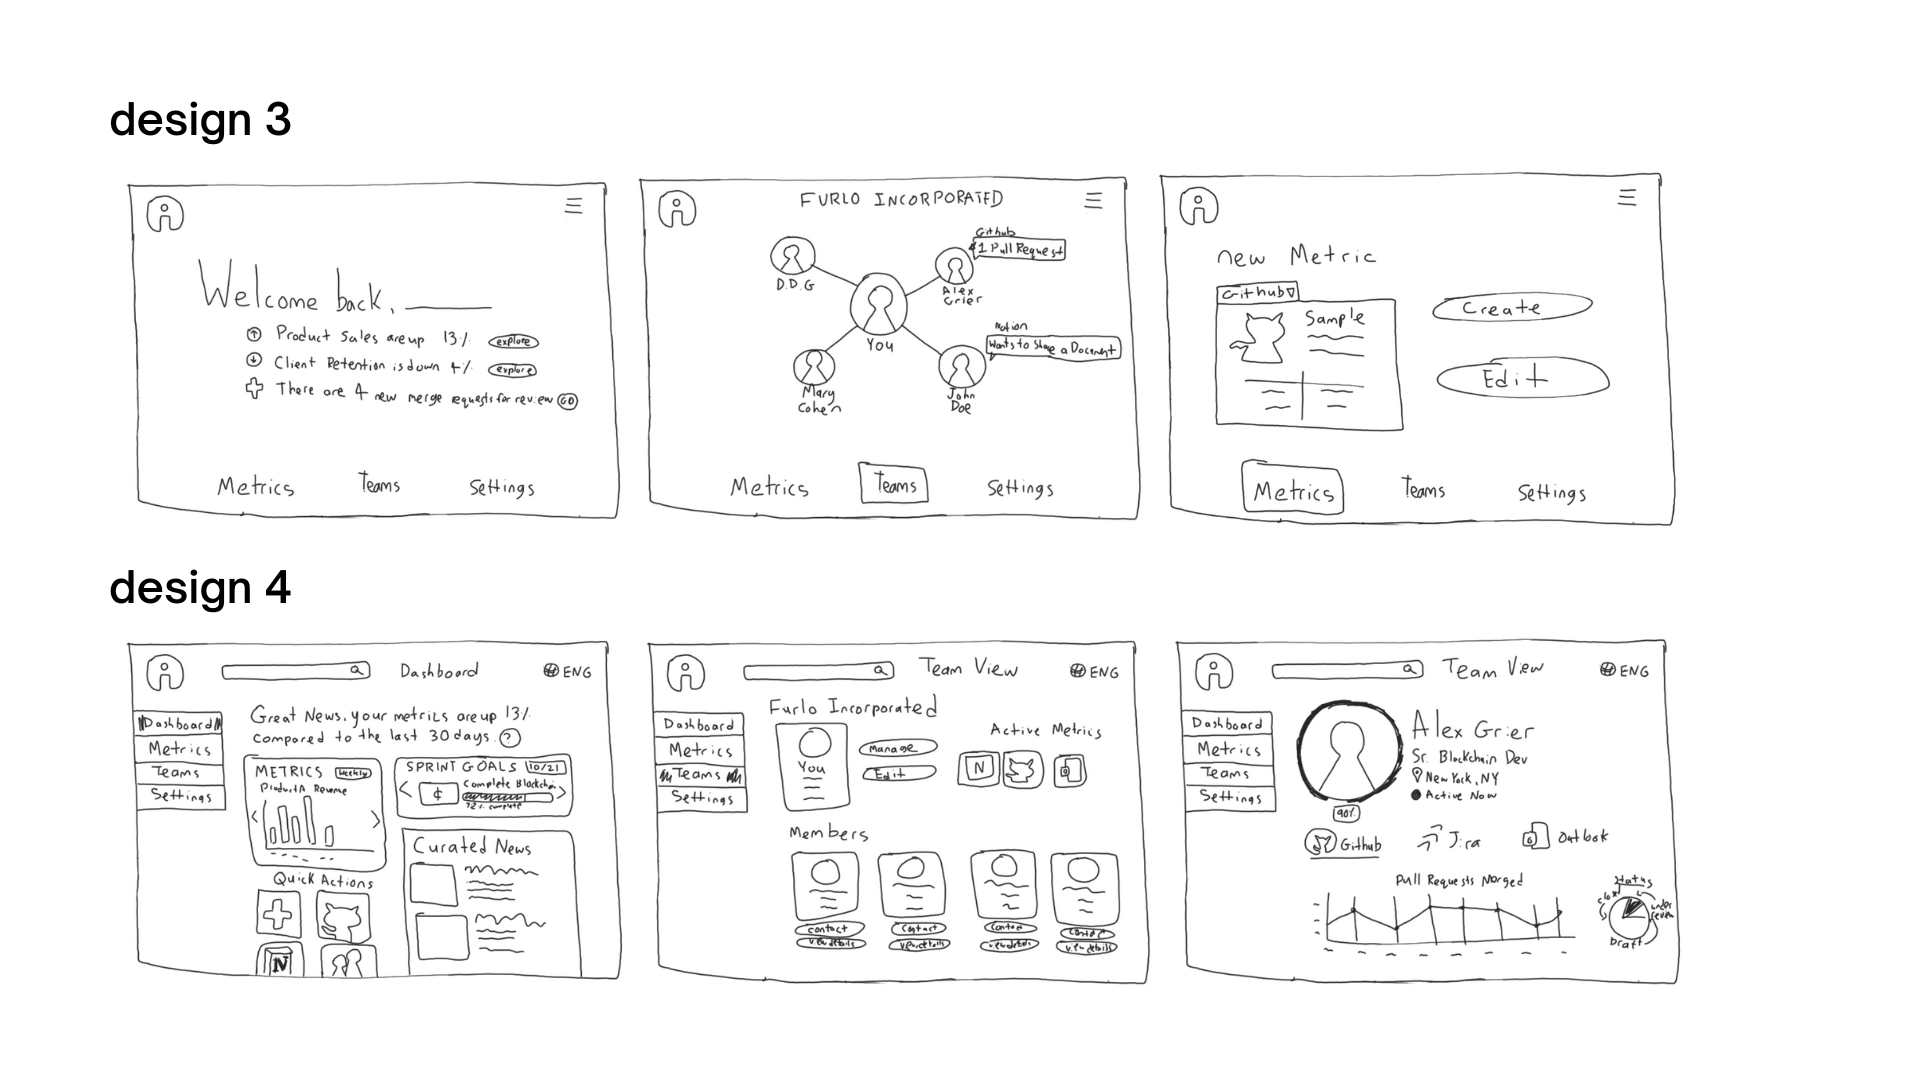 design 3
Welcome back, ______
Product Sales are up 13% explore
Client Retention is down 4% explore
There are 4 new merge requests for review GO
Metrics Teams Settings
FURLO INCORPORATED
D.D.G
Github
1 Pull Request
Alex
Grier
You
Notion
Wants to Share a Document
Mary
Cohen
John
Doe
Metrics Teams Settings
new Metric
Github
Sample
Create
Edit
Metrics Teams Settings
design 4
Dashboard ENG
Dashboard
Metrics
Teams
Settings
Great News, your metrics are up 13%
compared to the last 30 days. ?
METRICS Weekly
Product A Revenue
SPRINT GOALS 10/21
¢
Complete Blockchain
72% complete
Quick Actions
N
Curated News
Team View ENG
Dashboard
Metrics
Teams
Settings
Furlo Incorporated
You
Manage
Edit
Active Metrics
N
Members
contact
view details
Contact
view details
Contact
view details
Contact
view details
Team View ENG
Dashboard
Metrics
Teams
Settings
Alex Grier
Sr. Blockchain Dev
New York, NY
Active Now
90%
Github Jira Outlook
Pull Requests Merged
Status
under
review
Draft